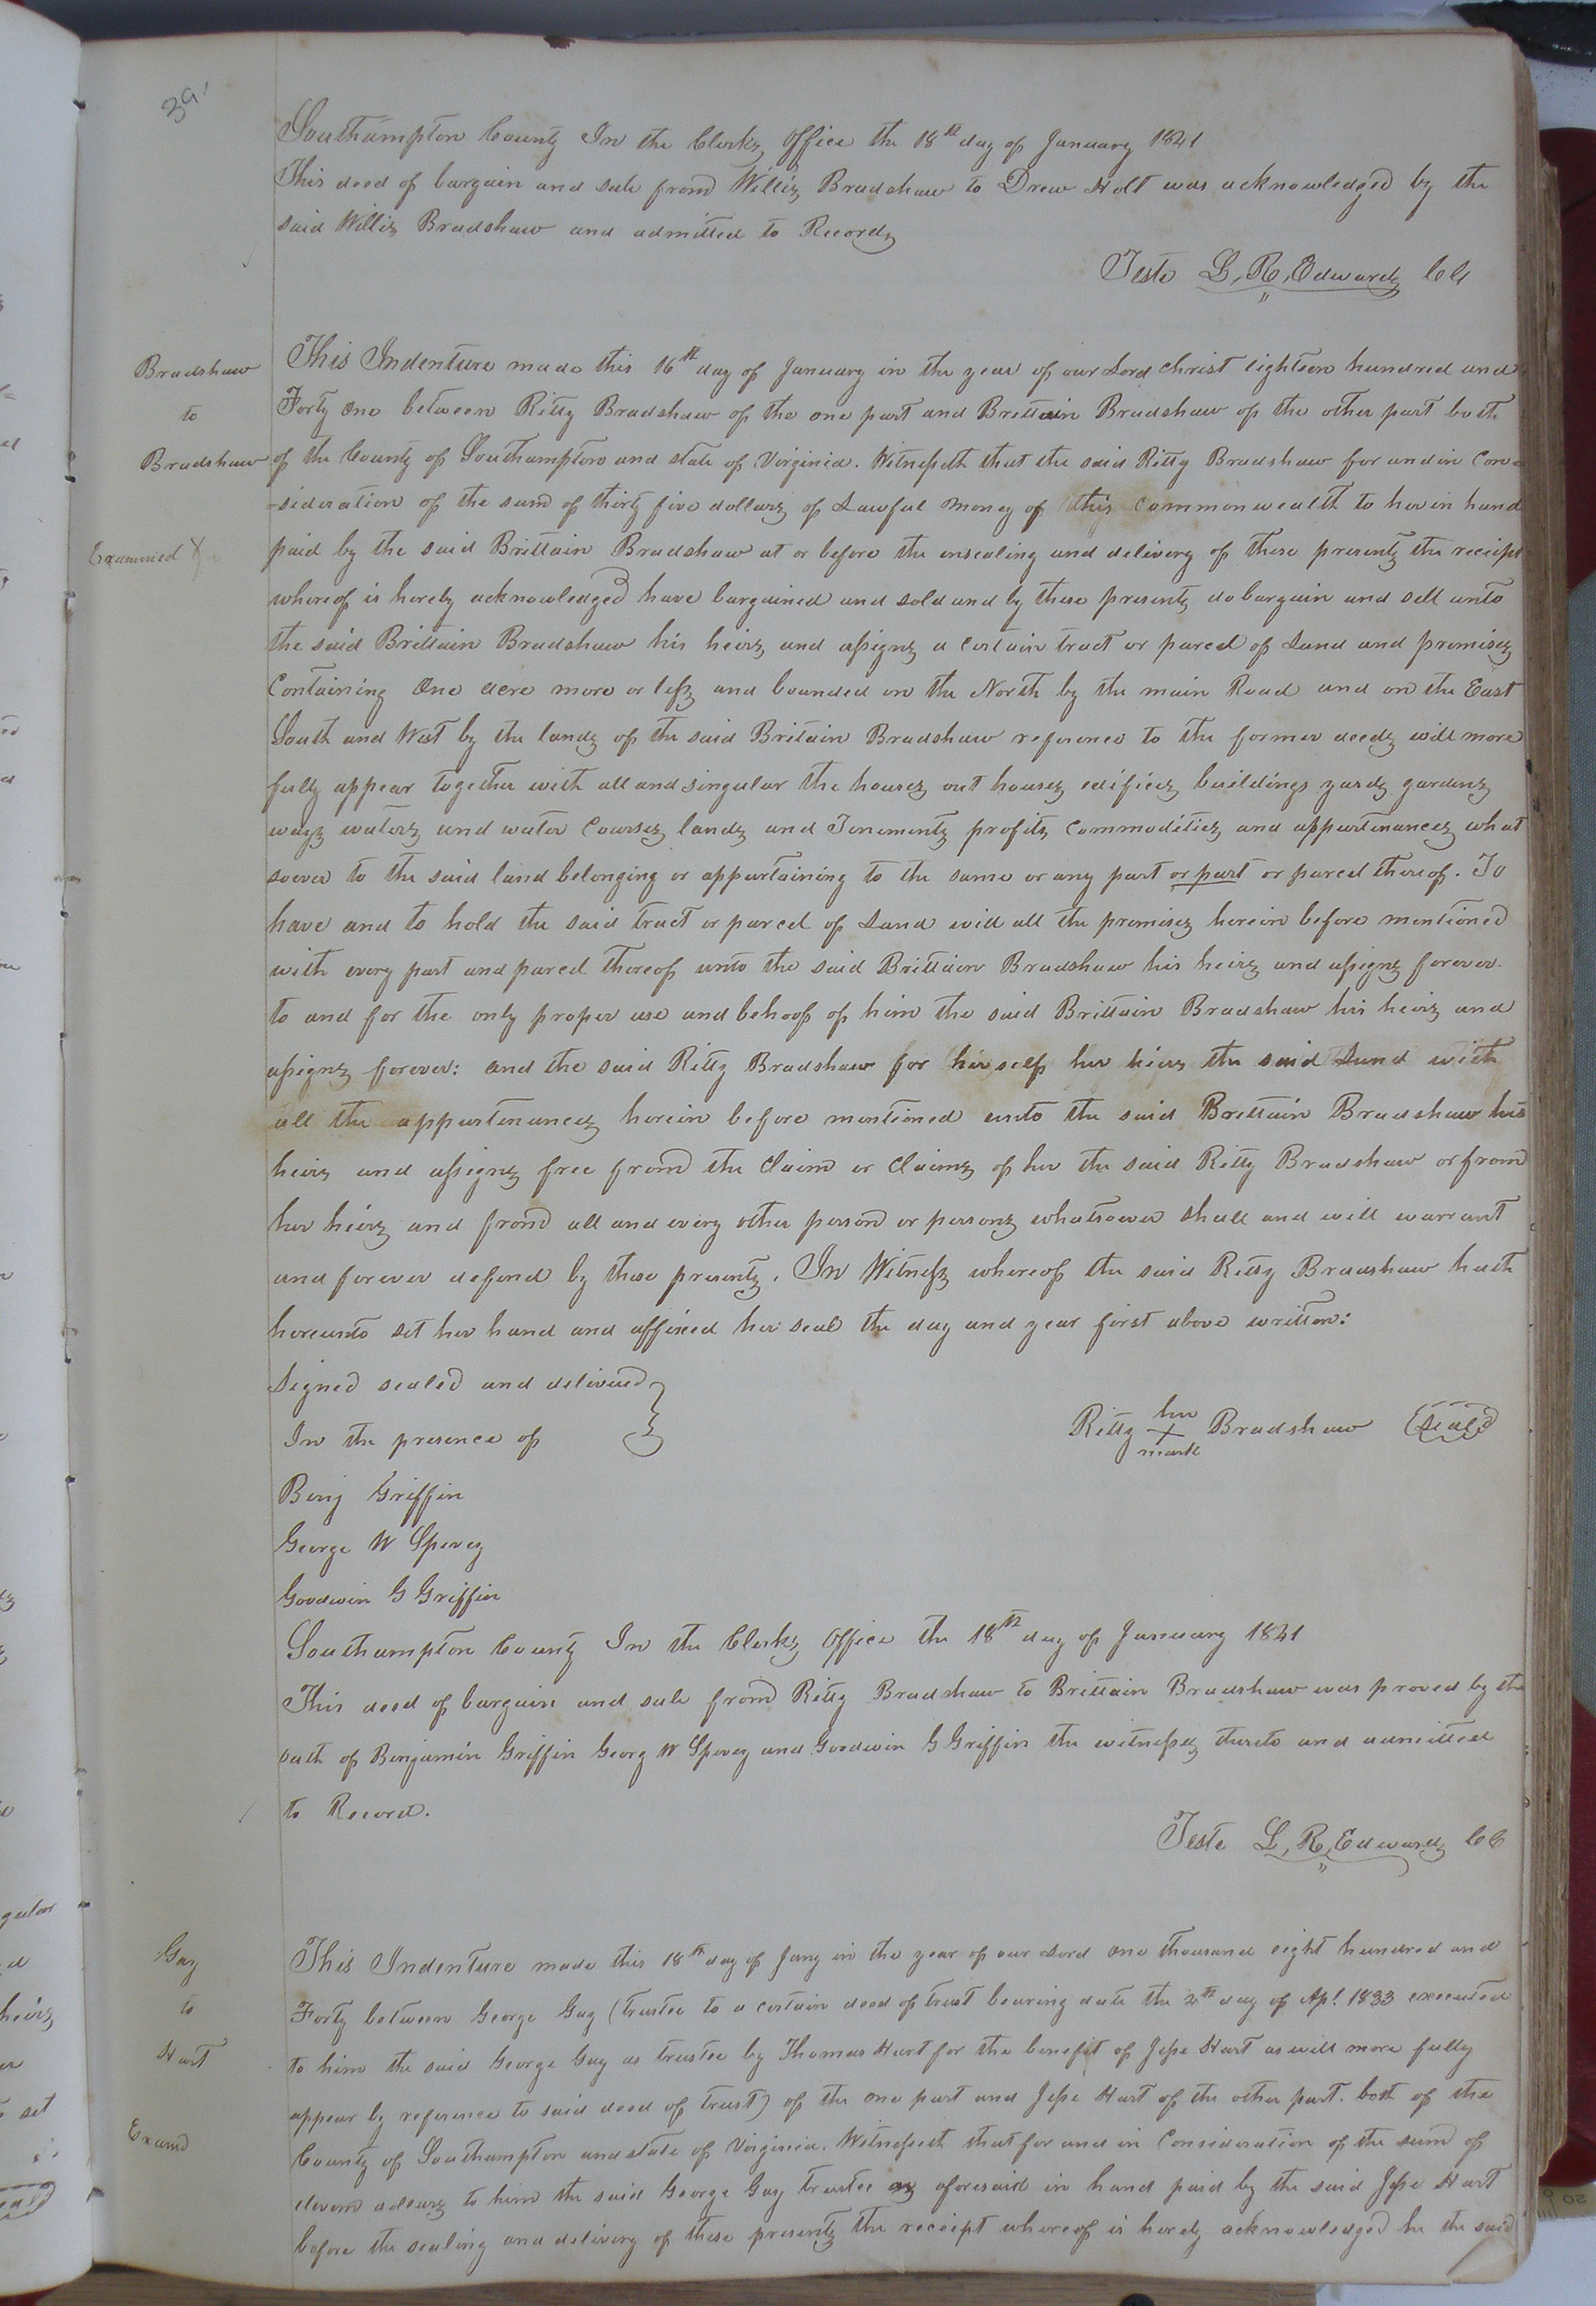 39
Southampton County In the Clerks Office the 18th day of January 1841
This deed of bargain and sale from Willis Bradshaw to Drew Holt was acknowledged by the
said Willis Bradshaw and admitted to Records
Teste L, R, Edwards CC
Bradshaw
to
Bradshaw
Examined X
This Indenture made this 16th day of January in the year of our Lord christ eighteen hundred and
Forty One between Ritty Bradshaw of the one part and Brittain Bradshaw of the other part both
of the County of Southampton and state of Virginia. Witnesseth that the said Ritty Bradshaw for and in Con=
-sideration of the sum of thirty five dollars of Lawful money of this commonwealth to her in hand
paid by the said Brittain Bradshaw at or before the ensealing and delivery of these presents the reciept
whereof is hereby acknowledged have bargained and sold and by these presents do bargain and sell unto
the said Brittain Bradshaw his heirs and assigns a certain tract or parcel of Land and premises
Containing One acre more or less and bounded on the North by the main Road and on the East
South and West by the lands of the said Britain Bradshaw reference to the former deeds will more
fully appear together with all and singular the houses out houses edifices buildings yards gardens
ways waters and water Courses lands and Tenements profits Commodities and appurtenances what
soever to the said land belonging or appertaining to the same or any part or part or parcel thereof. To
have and to hold the said tract or parcel of Land with all the premises herein before mentioned
with every part and parcel thereof unto the said Brittain Bradshaw his heirs and assigns forever.
to and for the only proper use and behoof of him the said Brittain Bradshaw his heirs and
assigns forever: and the said Ritty Bradshaw for herself her hiers the said Land with
all the appurtenances herein before mentioned unto the said Brittain Bradshaw his
heirs and assigns free from the Claim or Claims of her the said Ritty Bradshaw or from
her heirs and from all and every other person or persons whatsoever shall and will warrant
and forever defend by these presents. In Witness whereof the said Ritty Bradshaw hath
hereunto set her hand and affixed her seal the day and year first above written:
Signed sealed and delivered
In the presence of
Ritty her X mark Bradshaw (Seal)
Benj Griffin
George W Spivey
Goodwin G Griffin
Southampton County In the Clerks Office the 18th day of January 1841
This deed of bargain and sale from Ritty Bradshaw to Brittain Bradshaw was proved by the
oath of Benjamin Griffin Georg W Spivey and Goodwin G Griffin the witnesses thereto and admitted
to Record.
Teste L, R, Edwards CC
Gay
to
Hart
Examd
This Indenture made this 18th day of Jany in the year of our Lord One thousand eight hundred and
Forty between George Gay (trustee to a certain deed of trust bearing date the 2th day of Apl. 1833 executed
to him the said George Gay as trustee by Thomas Hart for the benefit of Jesse Hart as will more fully
appear by reference to said deed of trust) of the one part and Jesse Hart of the other part. both of the
County of Southampton and state of Virginia. Witnesseth that for and in Consideration of the sum of
eleven dollars to him the said George Gay trustee as aforesaid in hand paid by the said Jesse Hart
before the sealing and delivery of these presents the receipt whereof is hereby acknowledged he the said